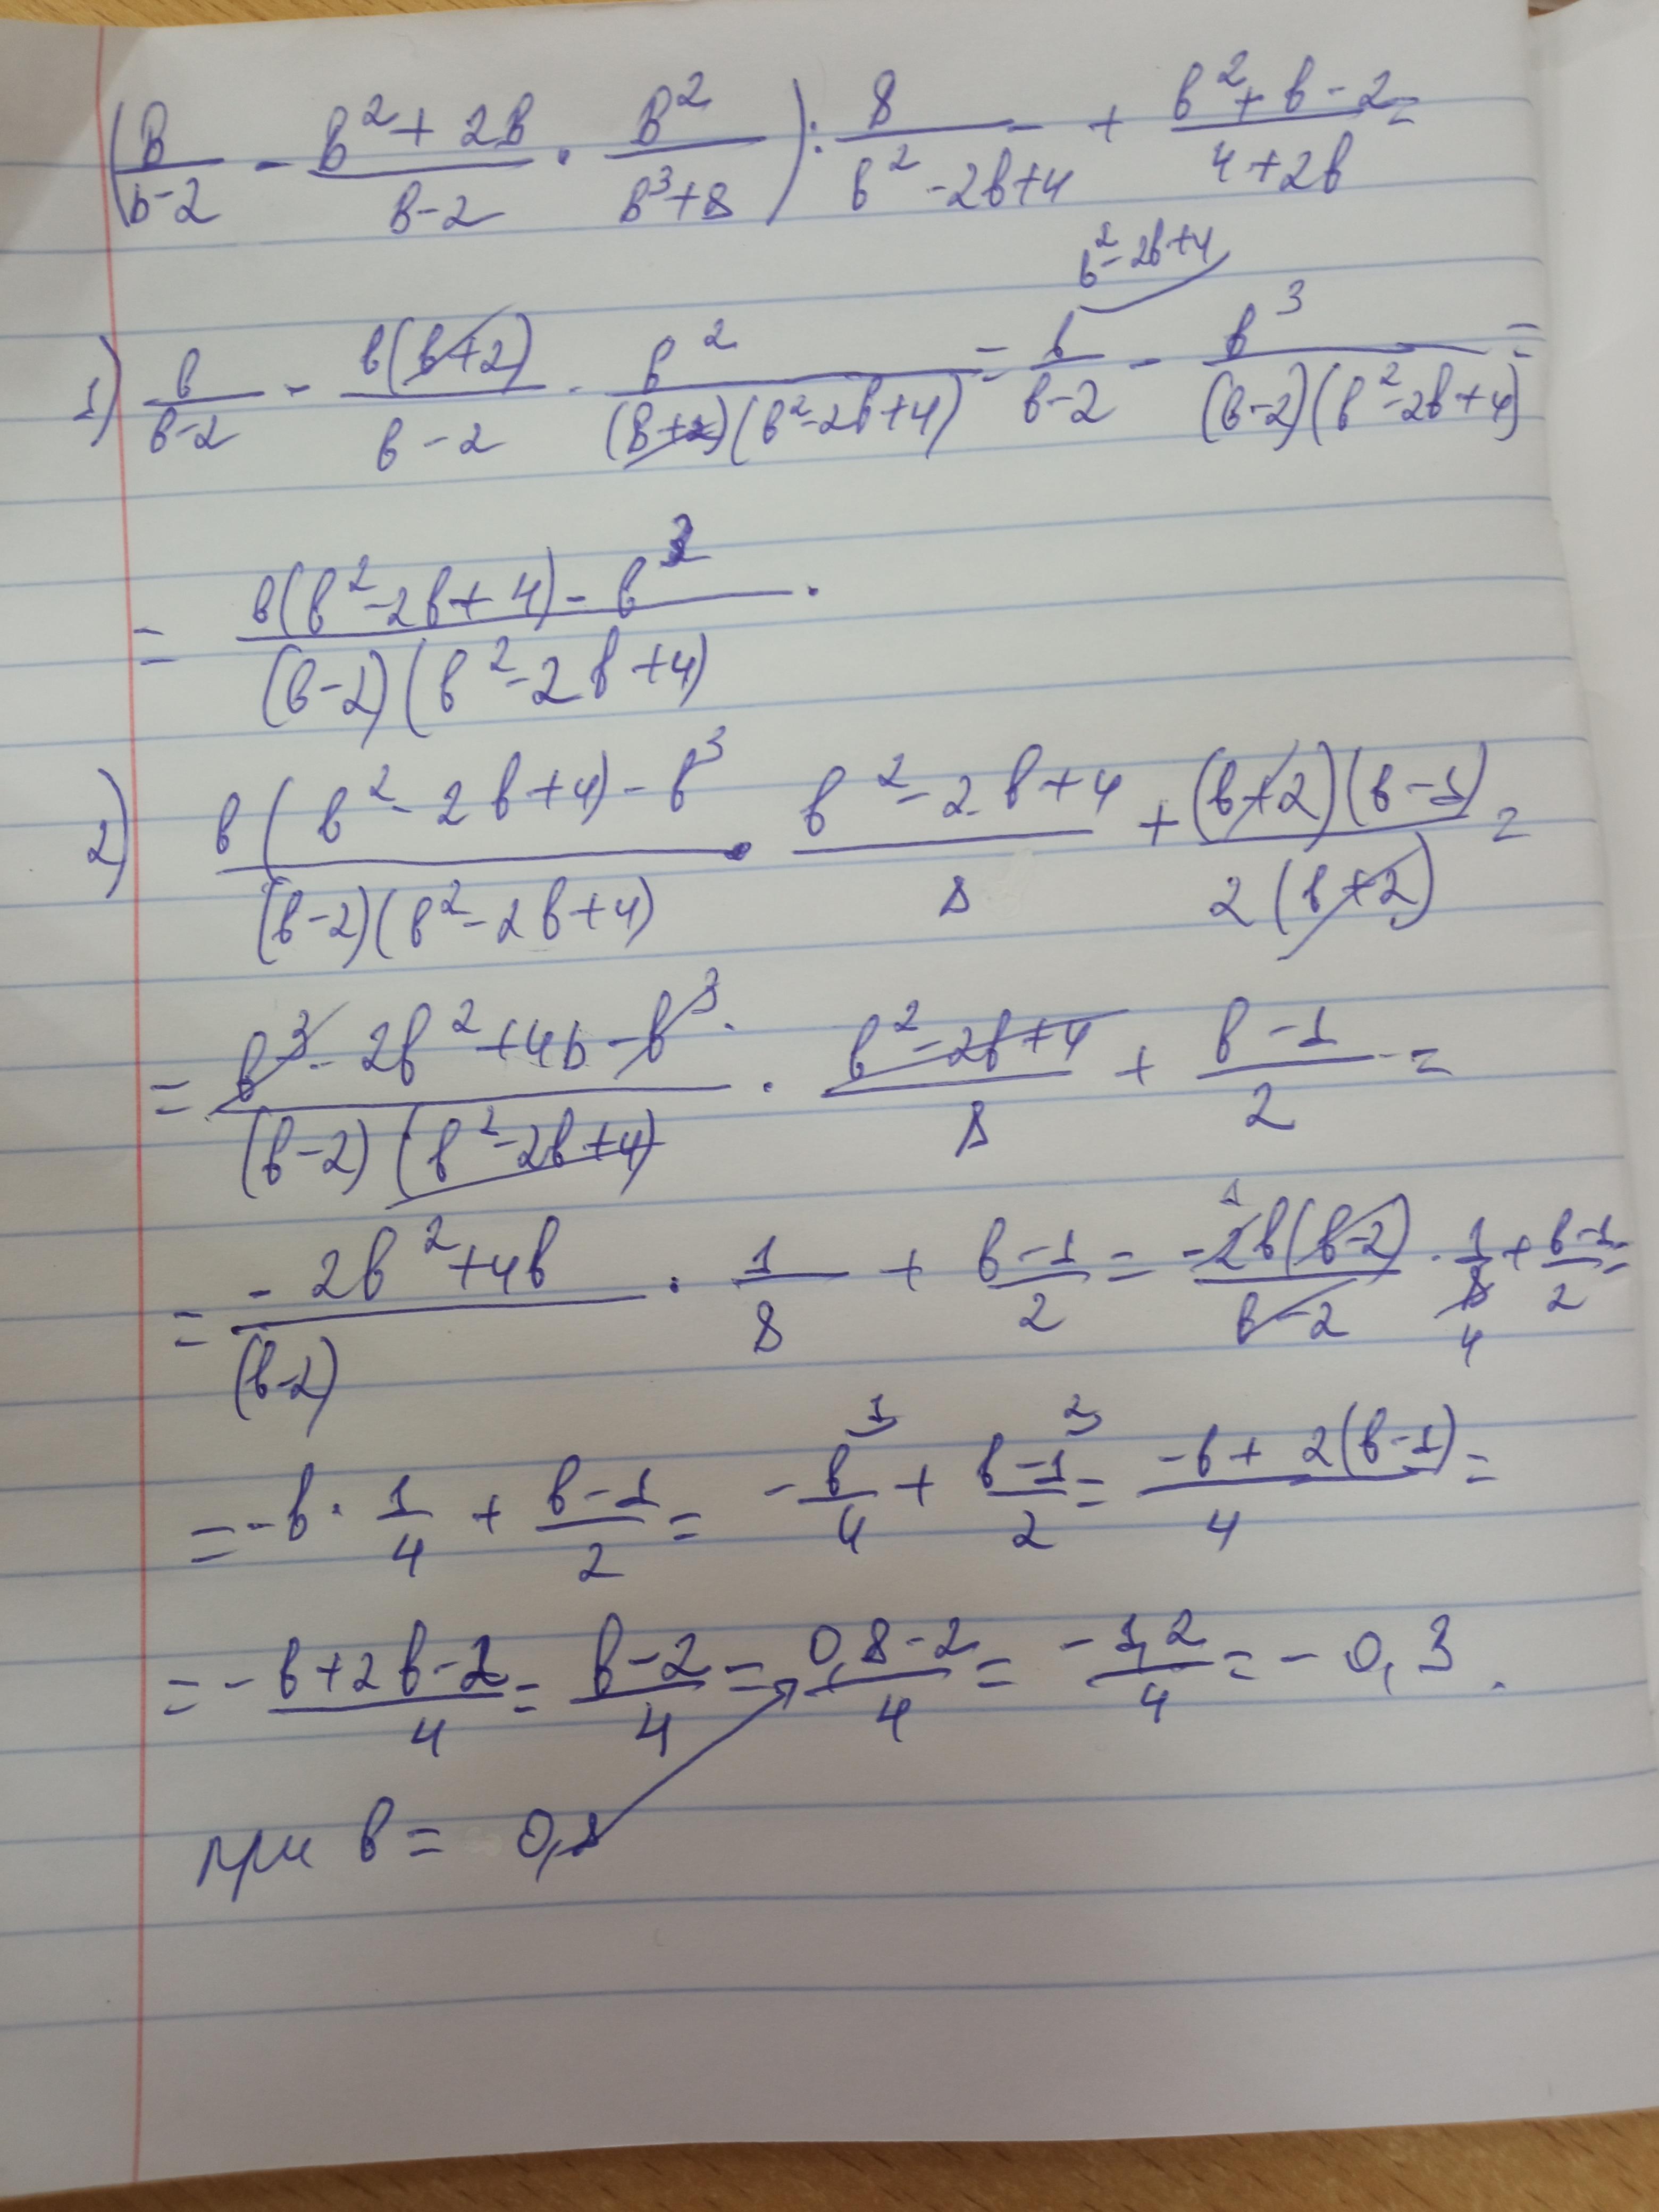 (B/(b-2) - (B²+2B)/(B-2) · B²/(B³+8)) : 8/(b²-2b+4) + (b²+b-2)/(4+2b) =
1) b/(b-2) - b(b+2)/(b-2) · b²/((b+2)(b²-2b+4)) = b/(b-2) - b³/((b-2)(b²-2b+4)) =
b²-2b+4
= (b(b²-2b+4)-b³)/((b-2)(b²-2b+4)) .
2) (b(b²-2b+4)-b³)/((b-2)(b²-2b+4)) · (b²-2b+4)/8 + (b+2)(b-1)/(2(b+2)) =
= (b³-2b²+4b-b³)/((b-2)(b²-2b+4)) · (b²-2b+4)/8 + (b-1)/2 =
= (-2b²+4b)/(b-2) · 1/8 + (b-1)/2 = -2b(b-2)/(b-2) · 1/8 + (b-1)/2 =
1 4
= -b · 1/4 + (b-1)/2 = -b/4 + (b-1)/2 = (-b+2(b-1))/4 =
1 2
= (-b+2b-2)/4 = (b-2)/4 = (0,8-2)/4 = -1,2/4 = -0,3.
при b = 0,8